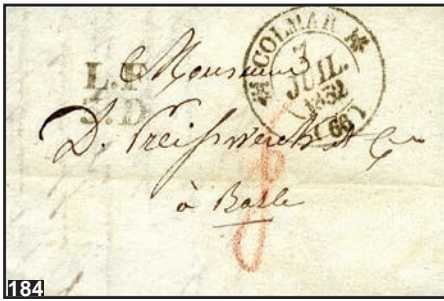 COLMAR
7
JUIL.
1832
(66)
L.F
3.D
Monsieur
D. Preiswerk et Cie
à Basle
184